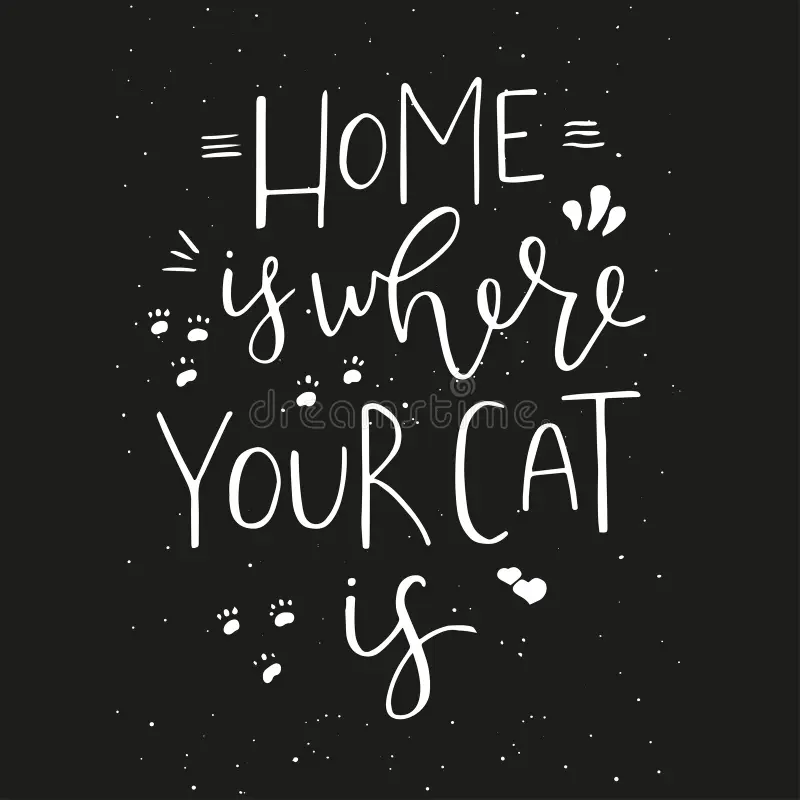 HOME
is where
YOUR CAT
is
dreamstime